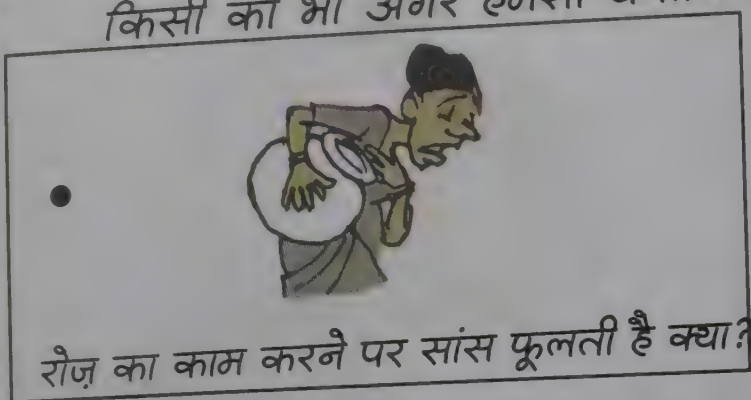 किसी को भी अगर
रोज़ का काम करने पर सांस फूलती है क्या?